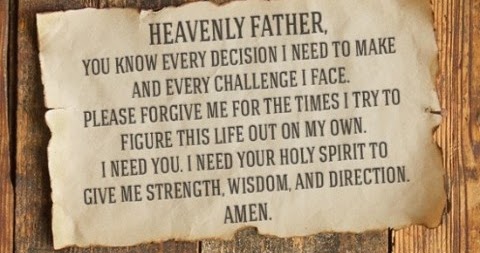 HEAVENLY FATHER,
YOU KNOW EVERY DECISION I NEED TO MAKE
AND EVERY CHALLENGE I FACE.
PLEASE FORGIVE ME FOR THE TIMES I TRY TO
FIGURE THIS LIFE OUT ON MY OWN.
I NEED YOU. I NEED YOUR HOLY SPIRIT TO
GIVE ME STRENGTH, WISDOM, AND DIRECTION.
AMEN.